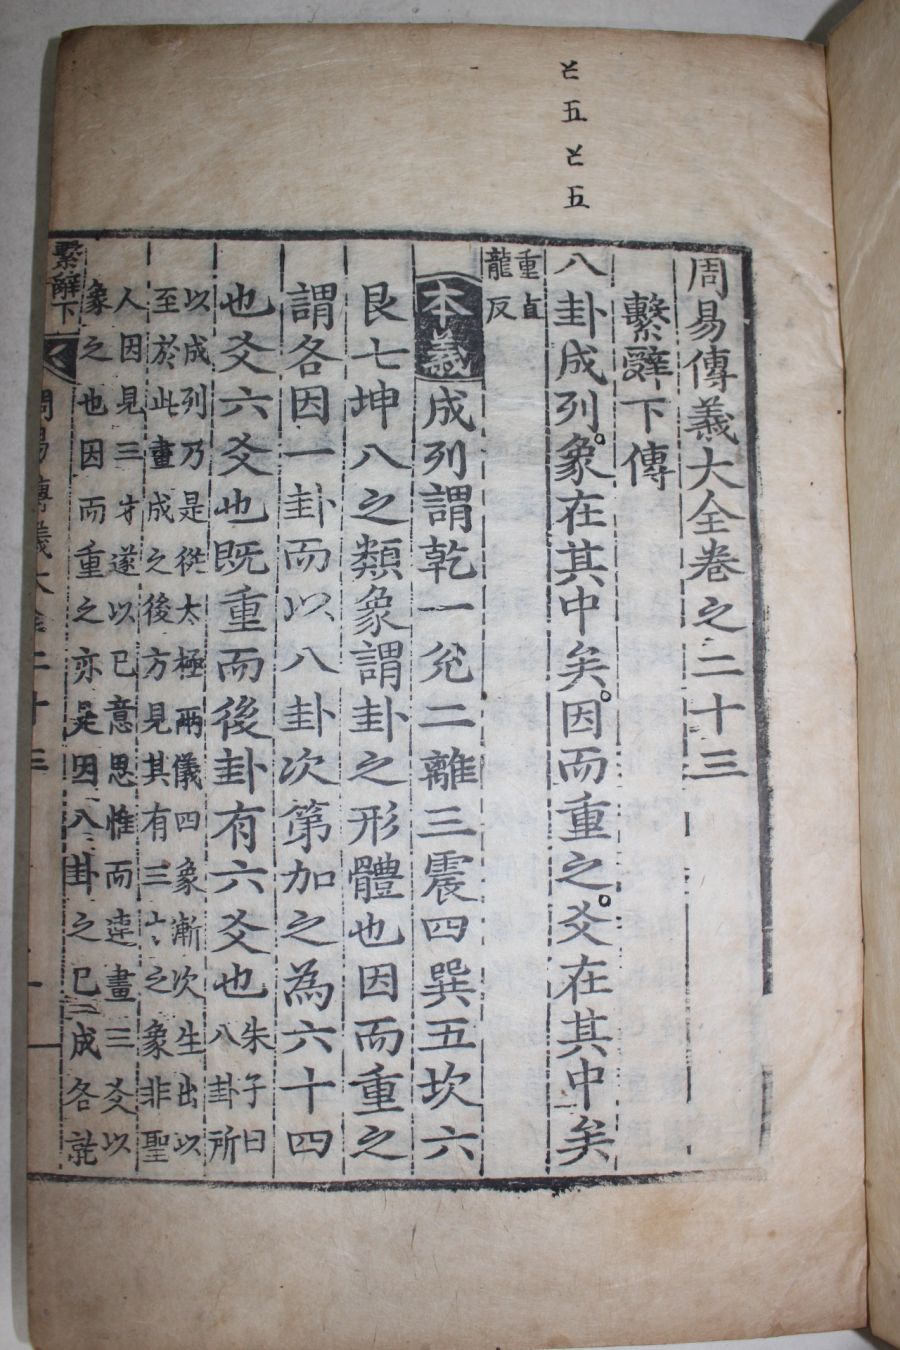 周易傳義大全卷之二十三
繫辭下傳
八卦成列。象在其中矣。因而重之。爻在其中矣
重直
龍反
本義成列謂乾一兊二離三震四巽五坎六
艮七坤八之類象謂卦之形體也因而重之
謂各因一卦而以八卦次第加之為六十四
也爻六爻也既重而後卦有六爻也
朱子曰
八卦所
以成列乃是從太極兩儀四象漸次生出以
至於此畫成之後方見其有三才之象非聖
人因見三才遂以已意思惟而連畫三爻以
象之也因而重之亦是因八卦之已成各就
繫辭下
周易傳義大全二十三
一
五
五